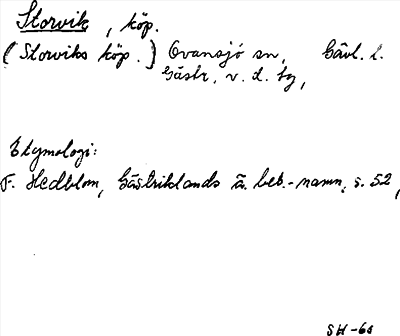 Storvik, köp.
(Storviks köp.) Ovansjö sn, Gävl. l.
Gästr. v. d. tg,
Etymologi:
F. Hedblom, Gästriklands ä. beb.-namn, s. 52,
SH-60